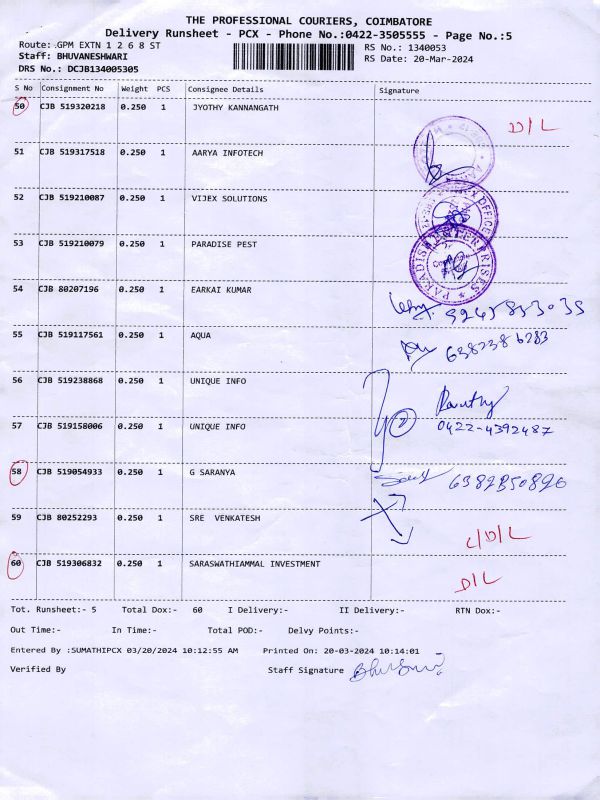 THE PROFESSIONAL COURIERS, COIMBATORE
Delivery Runsheet - PCX - Phone No.:0422-3505555 - Page No.:5
Route: .GPM EXTN 1 2 6 8 ST
RS No.: 1340053
Staff: BHUVANESHWARI
RS Date: 20-Mar-2024
DRS No.: DCJB134005305
S No Consignment No Weight PCS Consignee Details Signature
50 CJB 519320218 0.250 1 JYOTHY KANNANGATH
D/L
51 CJB 519317518 0.250 1 AARYA INFOTECH
52 CJB 519210087 0.250 1 VIJEX SOLUTIONS
OFFICE
53 CJB 519210079 0.250 1 PARADISE PEST
PARADISE ENTERPRISES
54 CJB 80207196 0.250 1 EARKAI KUMAR
55 CJB 519117561 0.250 1 AQUA
56 CJB 519238868 0.250 1 UNIQUE INFO
57 CJB 519158006 0.250 1 UNIQUE INFO
0422-4392487
58 CJB 519054933 0.250 1 G SARANYA
59 CJB 80252293 0.250 1 SRE VENKATESH
60 CJB 519306832 0.250 1 SARASWATHIAMMAL INVESTMENT
D/L
Tot. Runsheet:- 5 Total Dox:- 60 I Delivery:- II Delivery:- RTN Dox:-
Out Time:- In Time:- Total POD:- Delvy Points:-
Entered By :SUMATHIPCX 03/20/2024 10:12:55 AM Printed On: 20-03-2024 10:14:01
Verified By Staff Signature